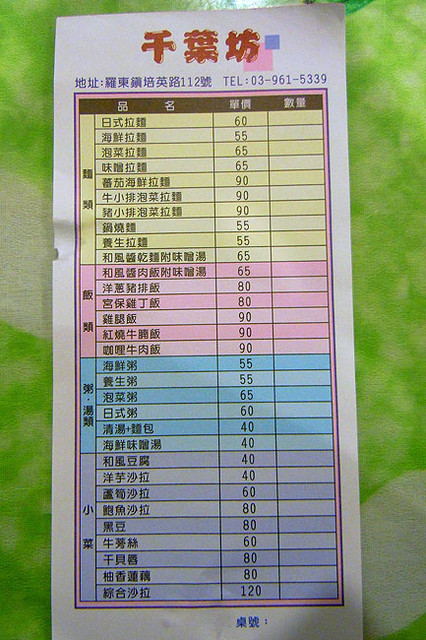 千葉坊
地址:羅東鎮培英路112號 TEL:03-961-5339
品名 單價 數量
麵類
日式拉麵 60
海鮮拉麵 55
泡菜拉麵 65
味噌拉麵 65
蕃茄海鮮拉麵 90
牛小排泡菜拉麵 90
豬小排泡菜拉麵 90
鍋燒麵 55
養生拉麵 55
和風醬乾麵附味噌湯 65
飯類
和風醬肉飯附味噌湯 65
洋蔥豬排飯 80
宮保雞丁飯 80
雞腿飯 90
紅燒牛腩飯 90
咖哩牛肉飯 90
粥.湯類
海鮮粥 55
養生粥 55
泡菜粥 65
日式粥 60
清湯+麵包 40
海鮮味噌湯 40
小菜
和風豆腐 40
洋芋沙拉 40
蘆筍沙拉 60
鮑魚沙拉 80
黑豆 80
牛蒡絲 60
干貝唇 80
柚香蓮藕 80
綜合沙拉 120
桌號：